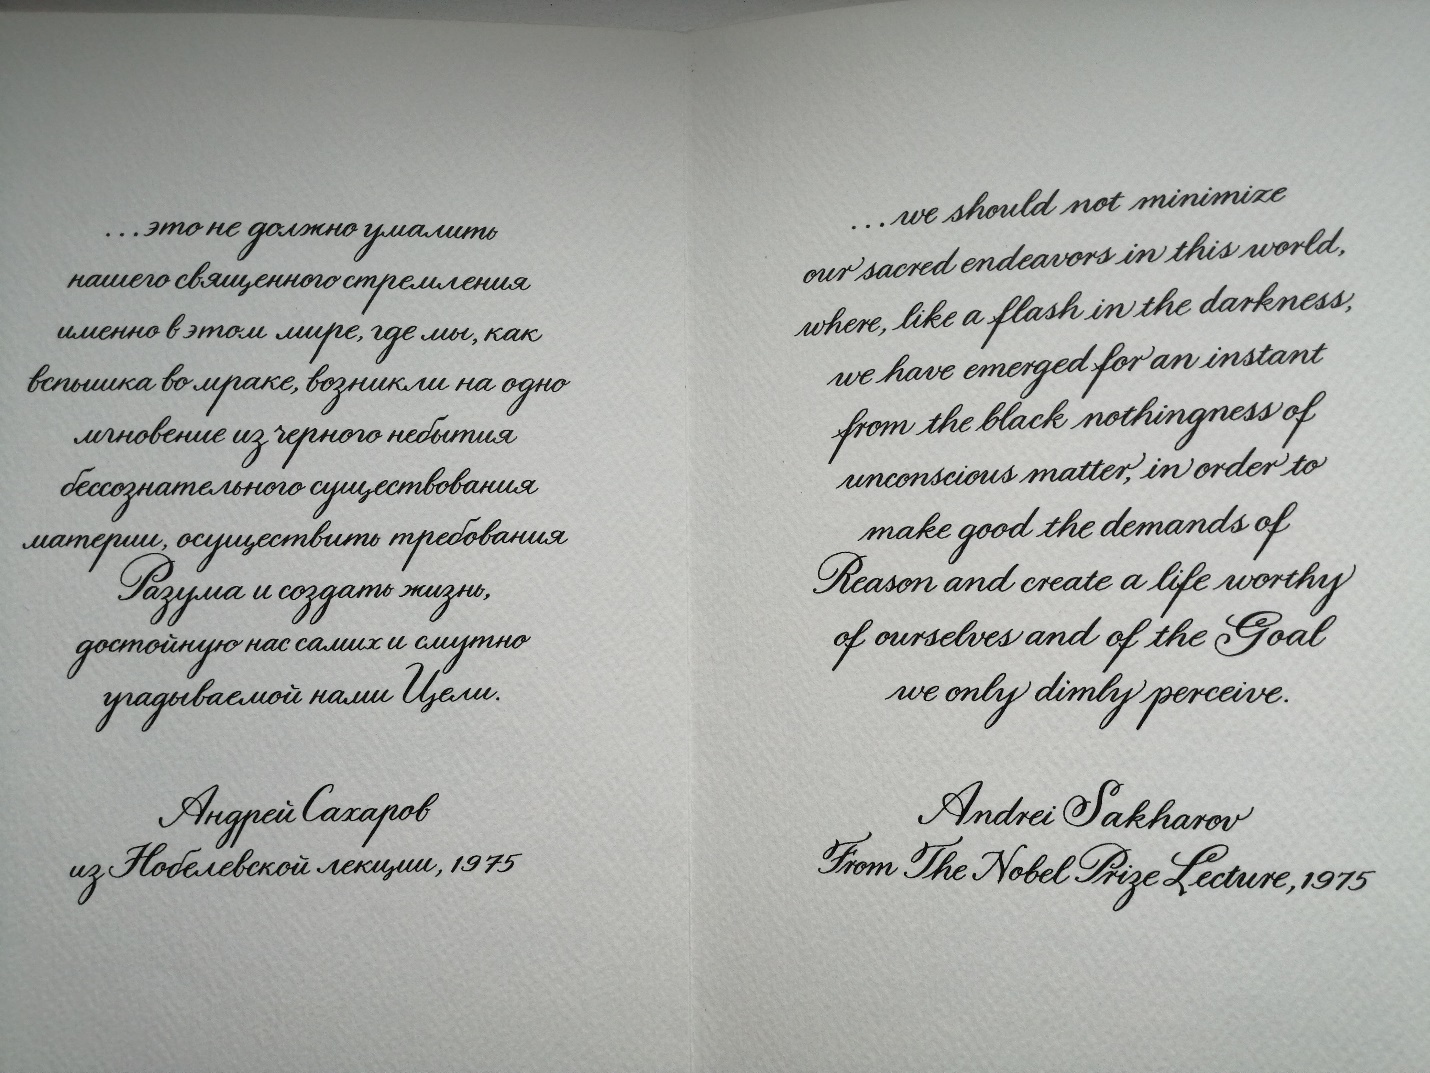 ...это не должно умалить
нашего священного стремления
именно в этом мире, где мы, как
вспышка во мраке, возникли на одно
мгновение из черного небытия
бессознательного существования
материи, осуществить требования
Разума и создать жизнь,
достойную нас самих и смутно
угадываемой нами Цели.
Андрей Сахаров
из Нобелевской лекции, 1975
...we should not minimize
our sacred endeavors in this world,
where, like a flash in the darkness,
we have emerged for an instant
from the black nothingness of
unconscious matter, in order to
make good the demands of
Reason and create a life worthy
of ourselves and of the Goal
we only dimly perceive.
Andrei Sakharov
From The Nobel Prize Lecture, 1975